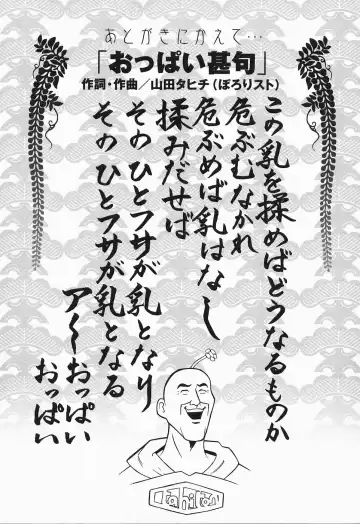 あとがきにかえて…
「おっぱい甚句」
作詞・作曲／山田タヒチ(ぽろりスト)
この乳を揉めばどうなるものか
危ぶむなかれ
危ぶめば乳はなし
揉みだせば
そのひとフサが乳となり
そのひとフサが乳となる
ア〜おっぱい
おっぱい